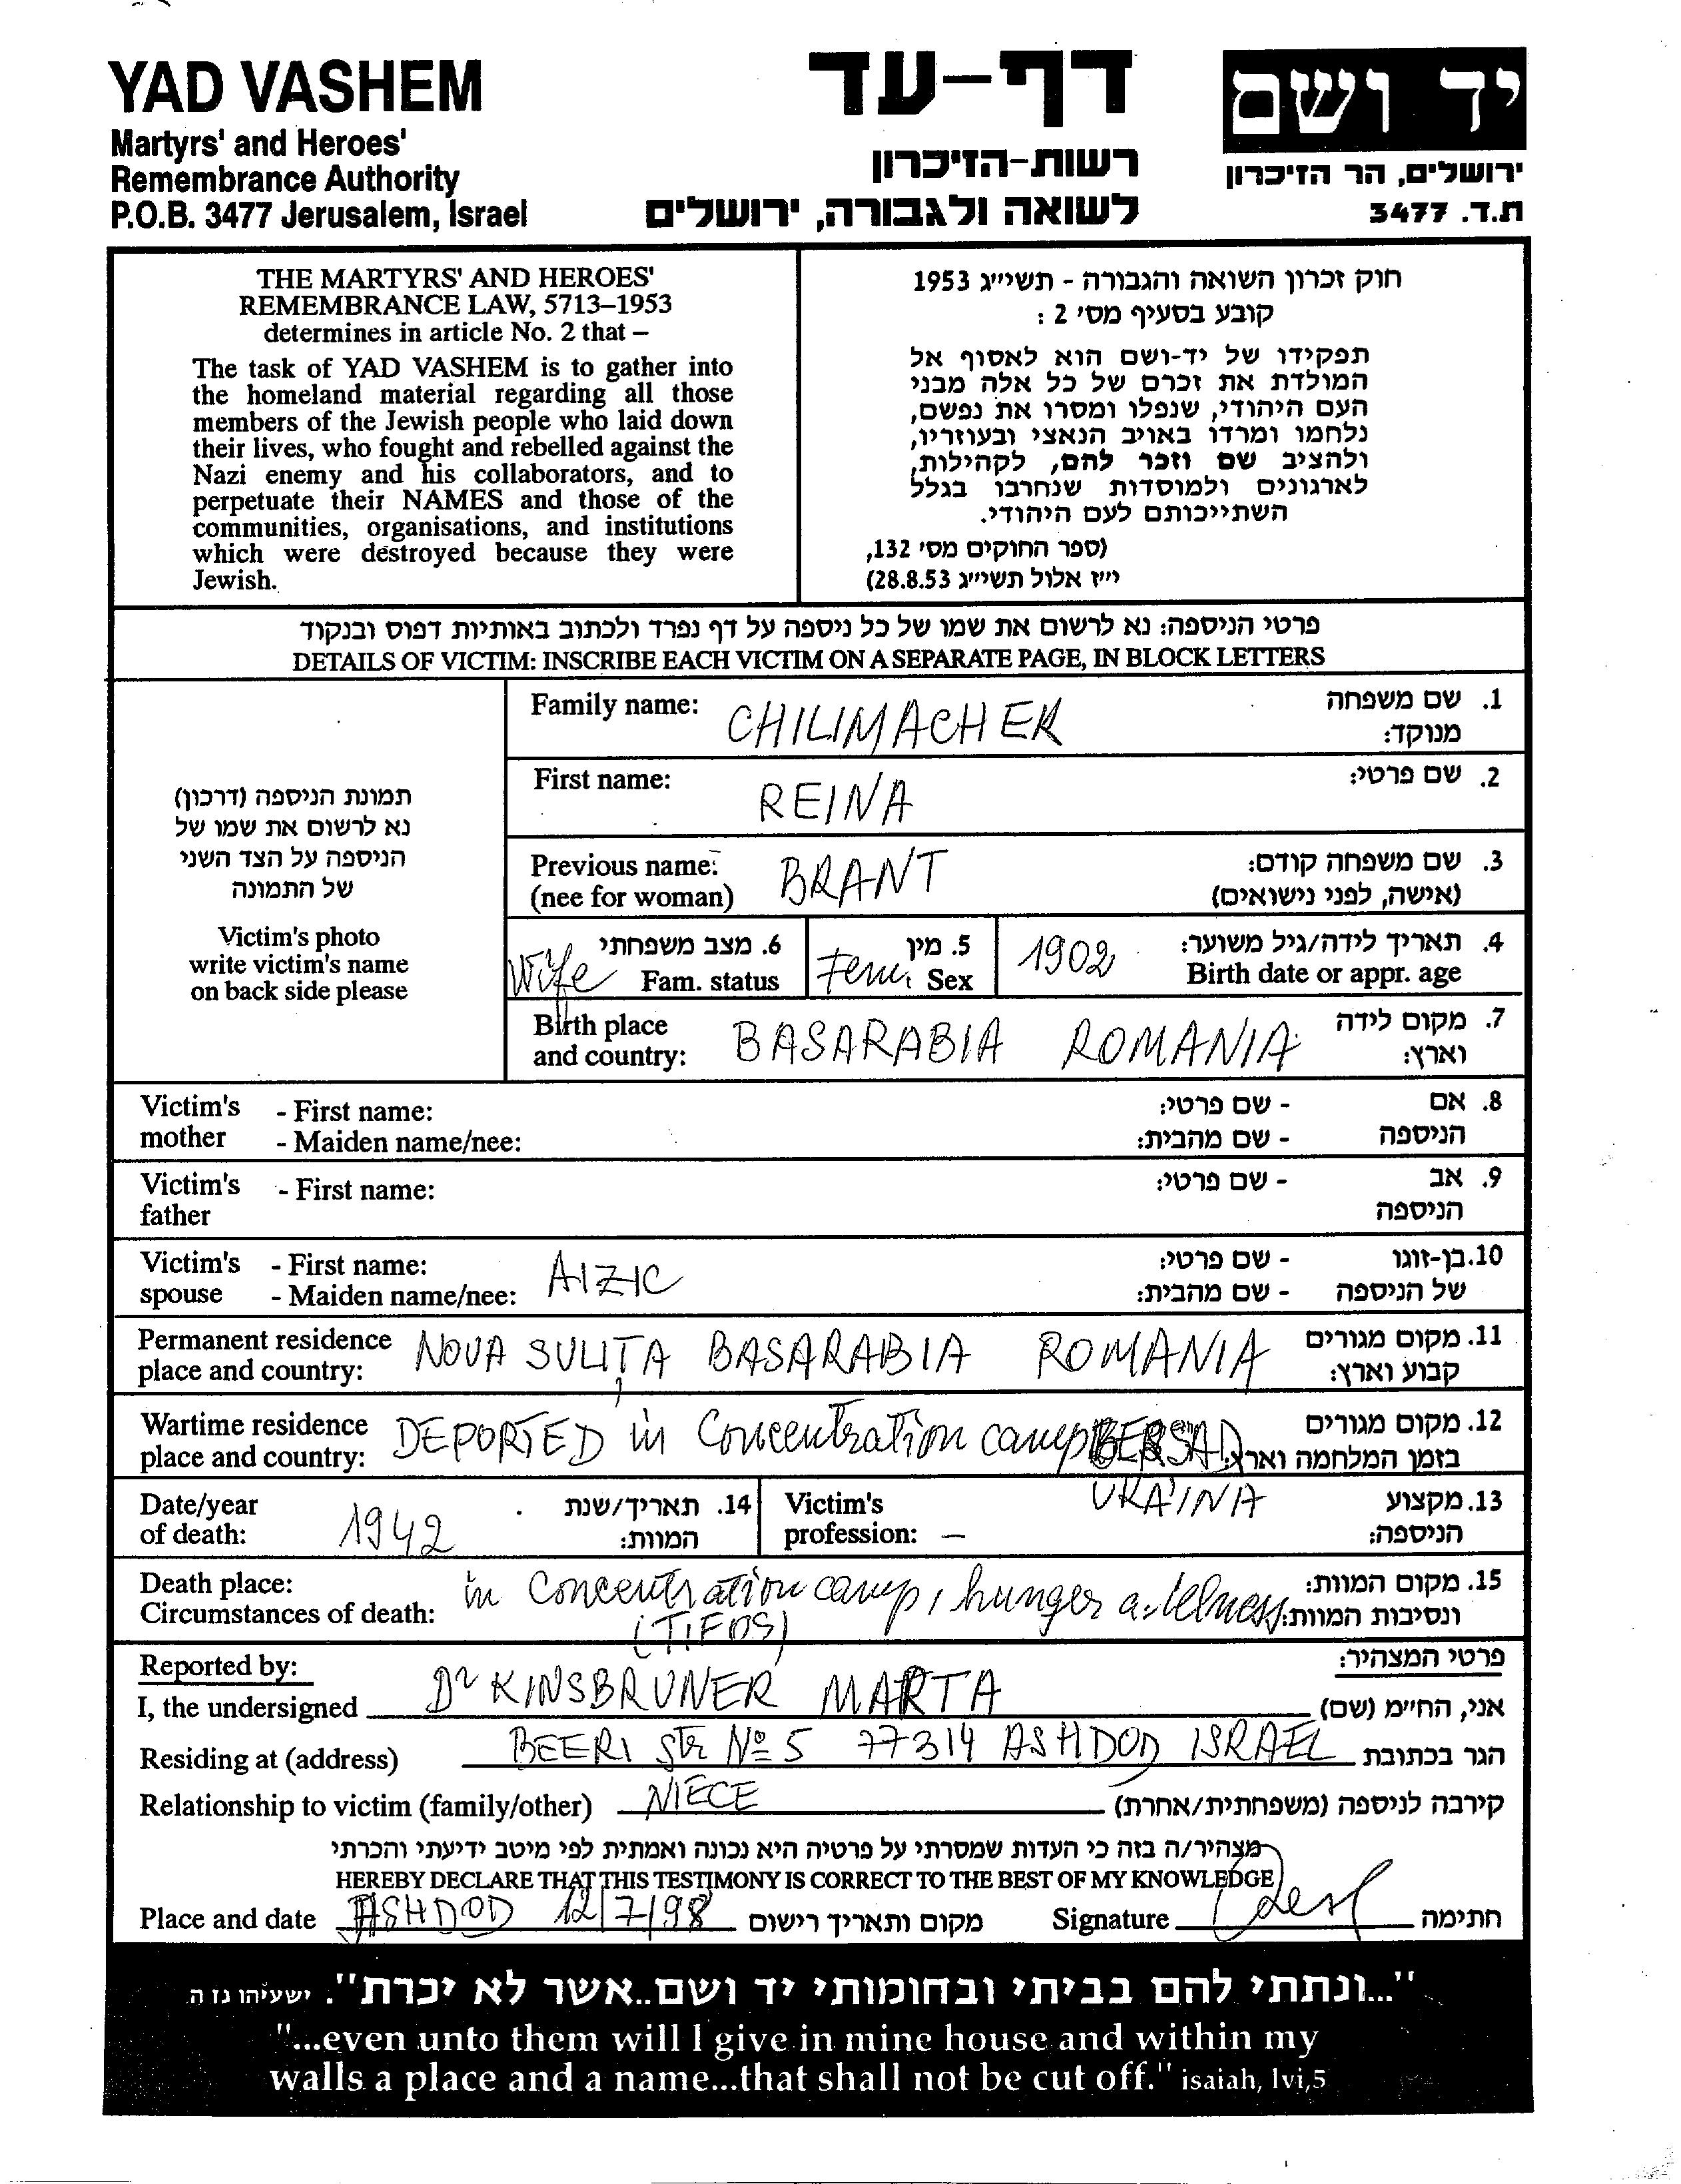 YAD VASHEM
Martyrs' and Heroes'
Remembrance Authority
P.O.B. 3477 Jerusalem, Israel
דף-עד
רשות-הזיכרון
לשואה ולגבורה, ירושלים
יד ושם
ירושלים, הר הזיכרון
ת.ד. 3477
THE MARTYRS' AND HEROES'
REMEMBRANCE LAW, 5713–1953
determines in article No. 2 that –
The task of YAD VASHEM is to gather into
the homeland material regarding all those
members of the Jewish people who laid down
their lives, who fought and rebelled against the
Nazi enemy and his collaborators, and to
perpetuate their NAMES and those of the
communities, organisations, and institutions
which were destroyed because they were
Jewish.
חוק זכרון השואה והגבורה - תשי״ג 1953
קובע בסעיף מס׳ 2 :
תפקידו של יד-ושם הוא לאסוף אל
המולדת את זכרם של כל אלה מבני
העם היהודי, שנפלו ומסרו את נפשם,
נלחמו ומרדו באויב הנאצי ובעוזריו,
ולהציב שם וזכר להם, לקהילות,
לארגונים ולמוסדות שנחרבו בגלל
השתייכותם לעם היהודי.
(ספר החוקים מס׳ 132,
י״ז אלול תשי״ג 28.8.53)
פרטי הניספה: נא לרשום את שמו של כל ניספה על דף נפרד ולכתוב באותיות דפוס ובנקוד
DETAILS OF VICTIM: INSCRIBE EACH VICTIM ON A SEPARATE PAGE, IN BLOCK LETTERS
תמונת הניספה (דרכון)
נא לרשום את שמו של
הניספה על הצד השני
של התמונה
Victim's photo
write victim's name
on back side please
Family name: CHILIMACHER 1. שם משפחה
מנוקד:
First name: REINA 2. שם פרטי:
Previous name: BRANT 3. שם משפחה קודם:
(nee for woman) (אישה, לפני נישואים)
Wife 6. מצב משפחתי Fem. 5. מין 1902 4. תאריך לידה/גיל משוער:
Fam. status Sex Birth date or appr. age
Birth place BASARABIA ROMANIA 7. מקום לידה
and country: וארץ:
Victim's - First name: - שם פרטי: 8. אם
mother - Maiden name/nee: - שם מהבית: הניספה
Victim's - First name: - שם פרטי: 9. אב
father הניספה
Victim's - First name: AIZIC - שם פרטי: 10. בן-זוגו
spouse - Maiden name/nee: - שם מהבית: של הניספה
Permanent residence NOUA SULIȚA BASARABIA ROMANIA 11. מקום מגורים
place and country: קבוע וארץ:
Wartime residence DEPORTED in Concentration camp BERSAD 12. מקום מגורים
place and country: בזמן המלחמה וארץ:
UKAINA
Date/year 1942 14. תאריך/שנת Victim's 13. מקצוע
of death: המוות: profession: – הניספה:
Death place: in Concentration camp, hunger a. 15. מקום המוות:
Circumstances of death: (TIFOS) ונסיבות המוות:
Reported by: פרטי המצהיר:
I, the undersigned Dr KINSBRUNER MARTA אני, הח״מ (שם)
Residing at (address) BEERI Str No 5 77314 ASHDOD ISRAEL הגר בכתובת
Relationship to victim (family/other) NIECE קירבה לניספה (משפחתית/אחרת)
מצהיר/ה בזה כי העדות שמסרתי על פרטיה היא נכונה ואמתית לפי מיטב ידיעתי והכרתי
HEREBY DECLARE THAT THIS TESTIMONY IS CORRECT TO THE BEST OF MY KNOWLEDGE
Place and date ASHDOD 12/7/98 מקום ותאריך רישום Signature חתימה
"...ונתתי להם בביתי ובחומותי יד ושם..אשר לא יכרת". ישעיהו נז ה
"...even unto them will I give in mine house and within my
walls a place and a name...that shall not be cut off." isaiah, lvi,5